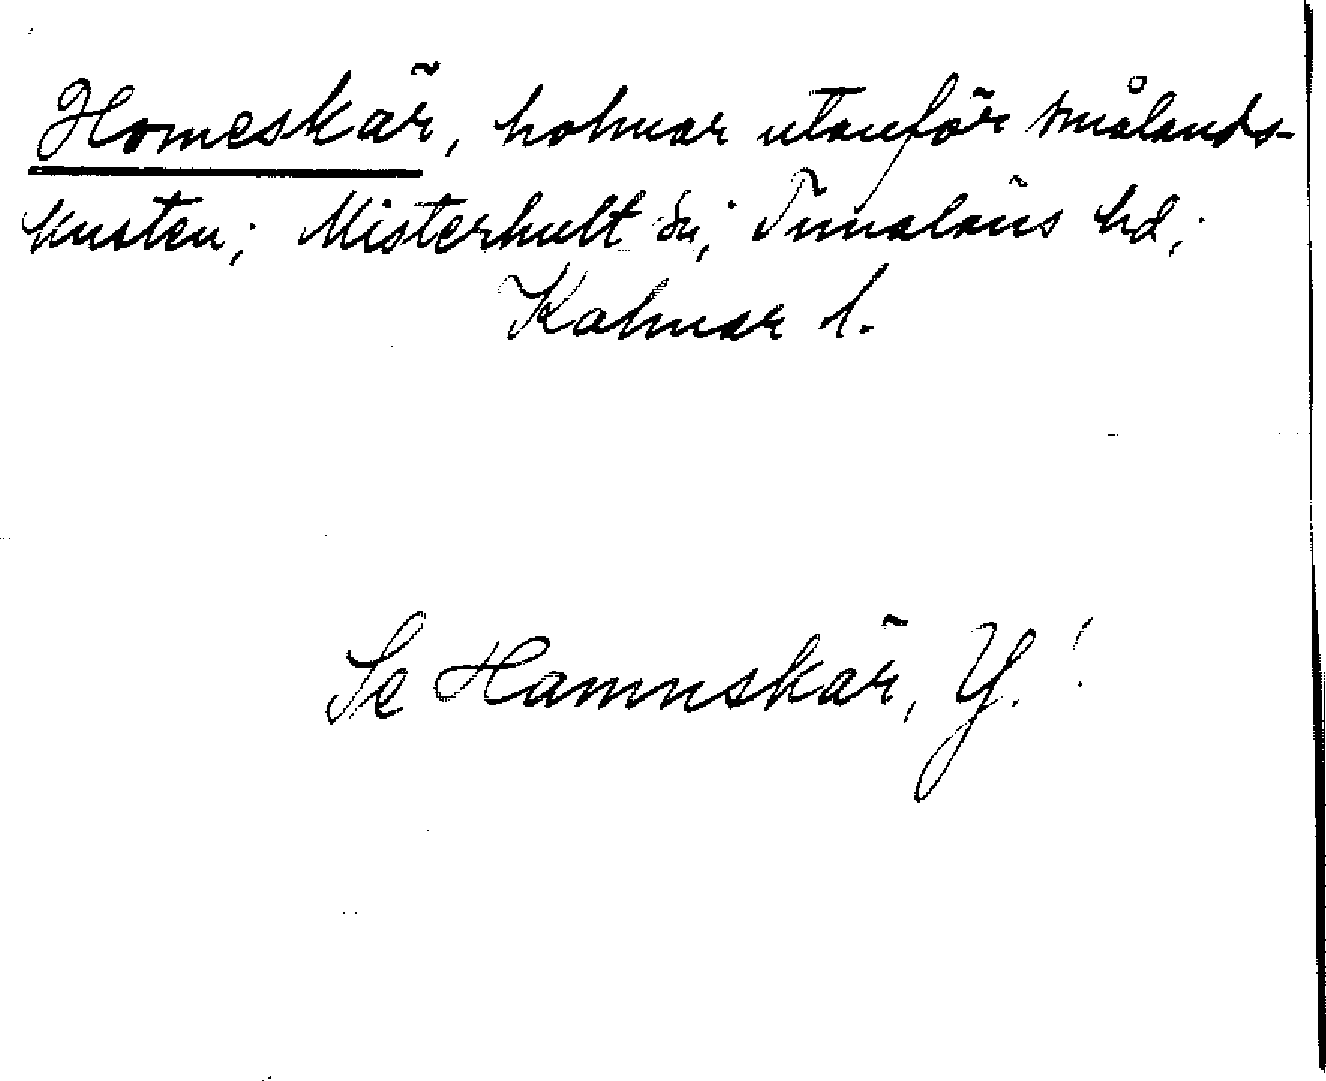 Homeskär, holmar utanför smålands-
kusten; Misterhult sn; Tunaläns hd;
Kalmar l.
Se Hamnskär, Y!